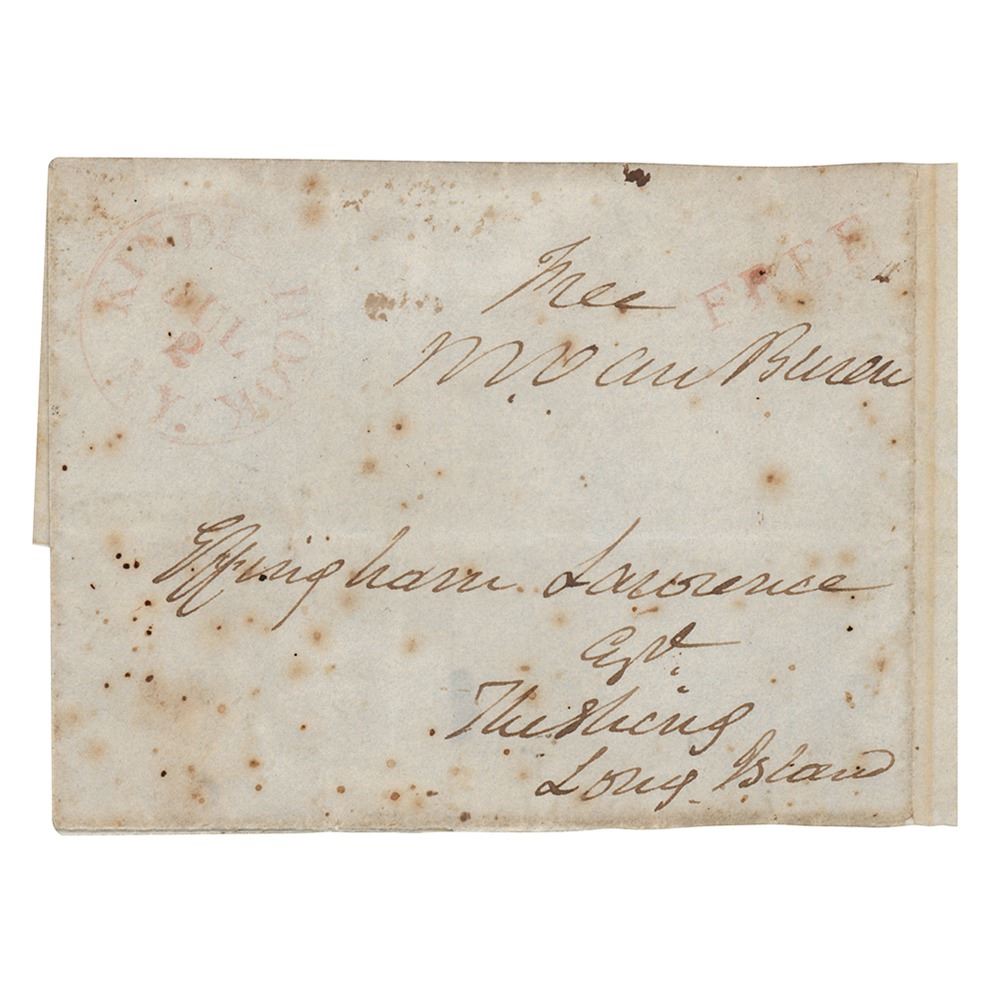 KINDERHOOK
JUL
2
N Y
FREE
Free
M Van Buren
Effingham Lawrence
Esqr.
Flushing
Long Island